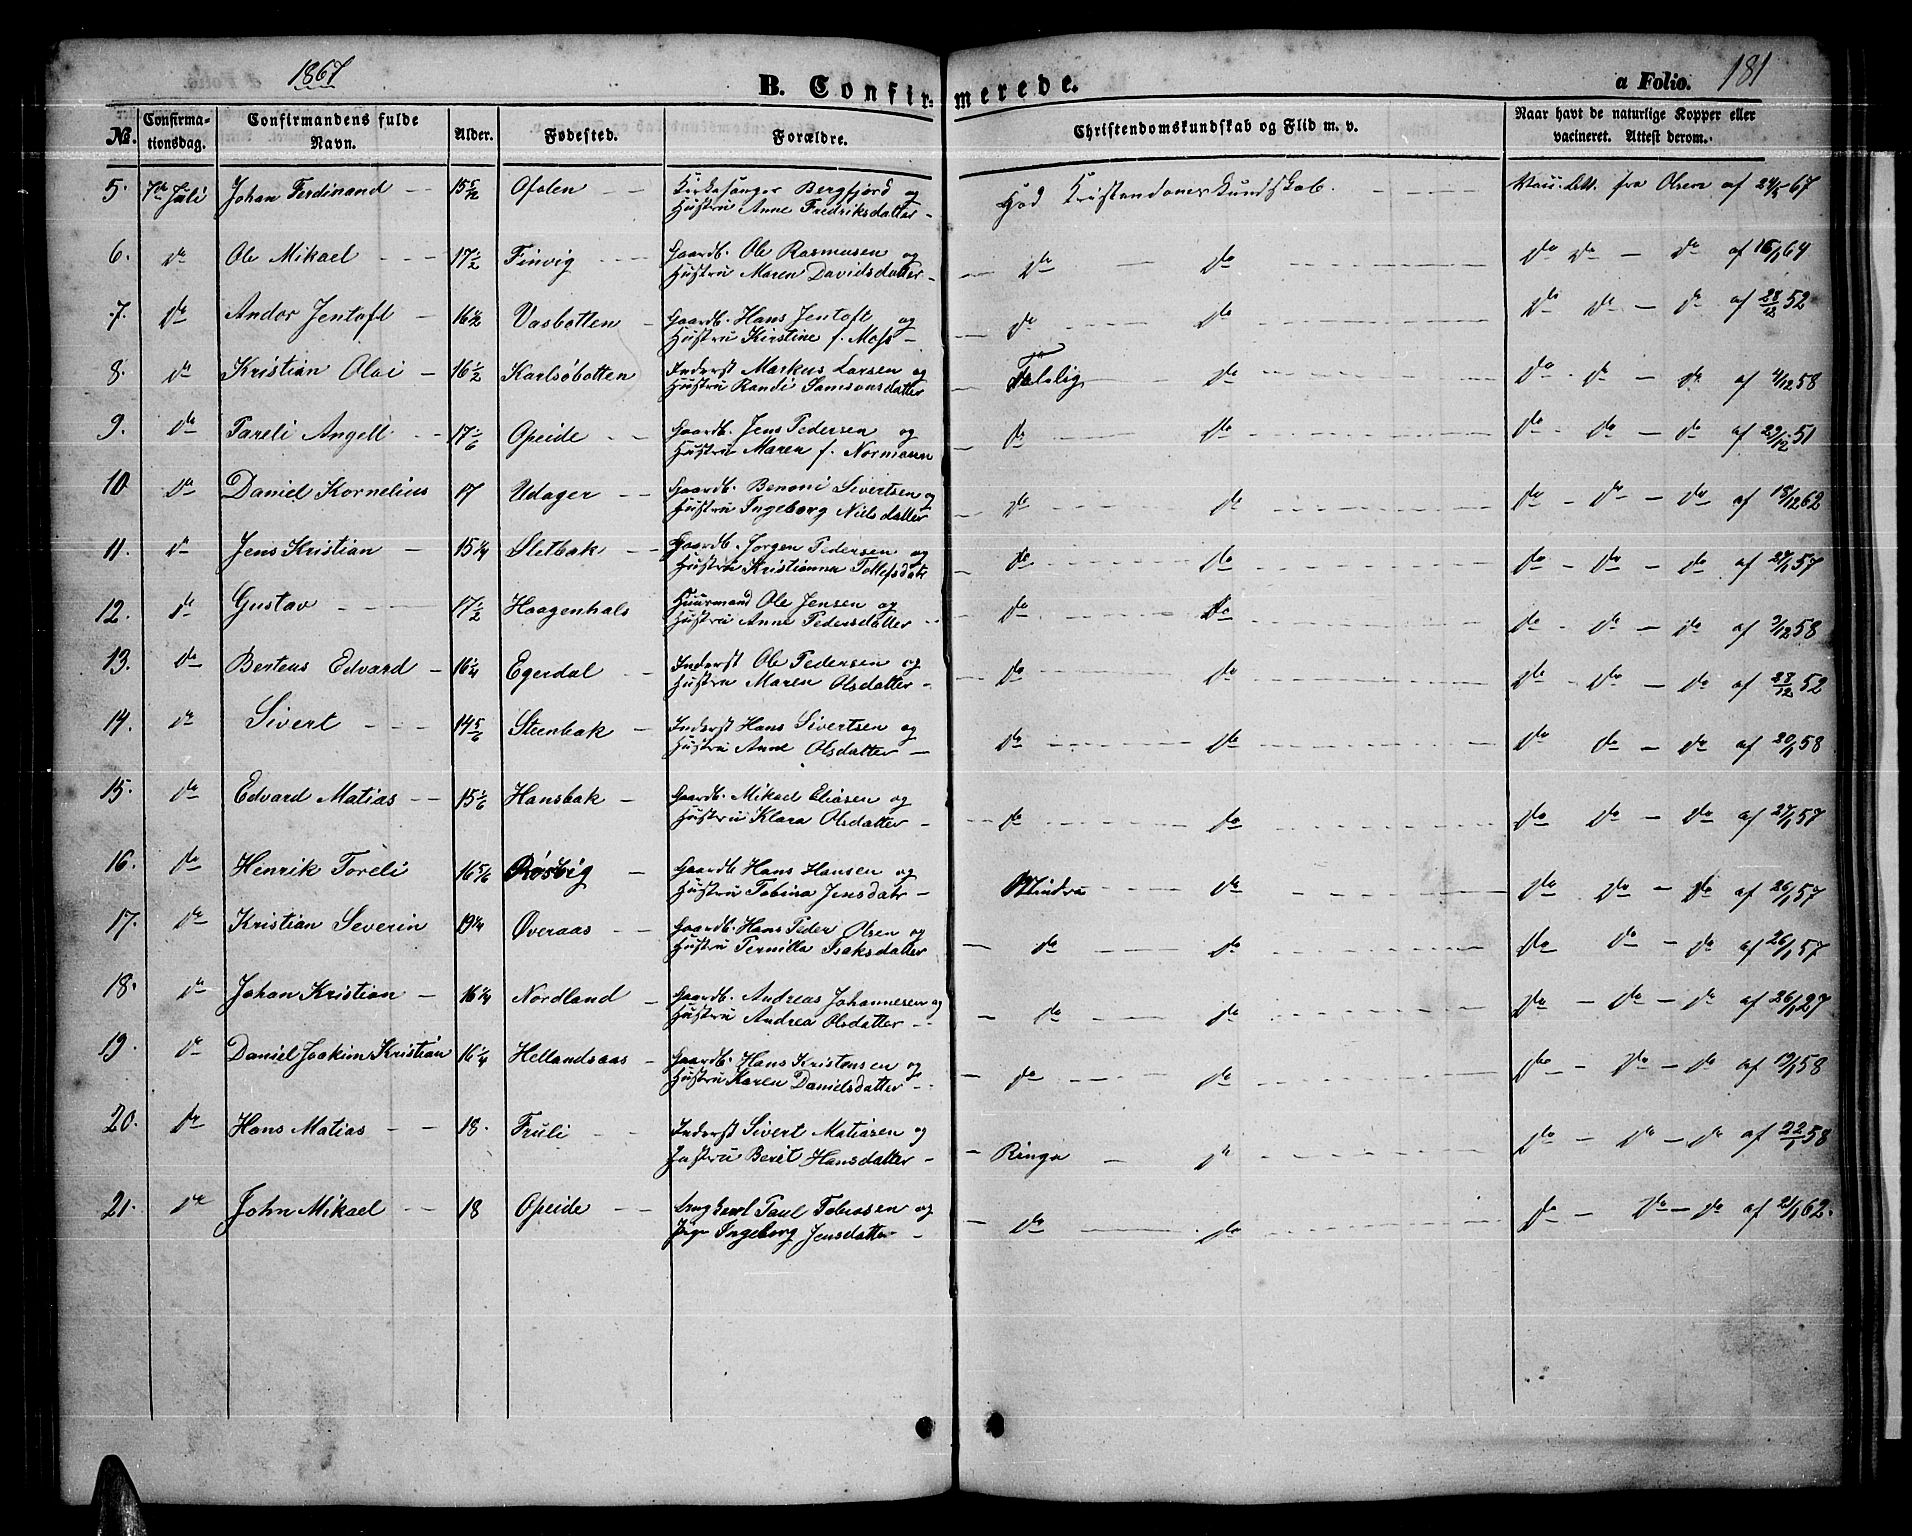 1867
B. Confirmerede.
a Folio. 181
No. Confirmationsdag. Confirmandens fulde Navn. Alder. Fødested. Forældre. Christendomskundskab og Flid m. v. Naar havt de naturlige Kopper eller vacineret. Attest derom.
5. 7de Juli Johan Ferdinand 15 5/12 Ofoten Kirkesanger Bergfjord og God Kristendomskundskab. fra Olsen af 67
Hustru Anne Fredriksdatter
6. do Ole Mikael 17 1/2 Finvig Gaardb. Ole Rasmusen og do do do do — do af 64
Hustru Maren Davidsdatter
7. do Andor Jentoft 16 1/2 Vasbotten Gaardb. Hans Jentoft og do do do do — do af 28/12 52
Hustru Kirstine f. Mofs
8. do Kristian Olai 16 1/2 Karlsøbotten Inderst Markus Larsen og Taalelig do do do — do af 4/12 58
Hustru Randi Samsonsdatter
9. do Pareli Angell 17 1/6 Opeide Gaardb. Jens Pedersen og do do do do — do af 29/12 51
Hustru Maren f. Normann
10 do Daniel Kornelius 17 Udager Gaardb. Benoni Sivertsen og do do do — do — do af 18/12 62
Hustru Ingeborg Nielsdatter
11. do Jens Kristian 15 1/4 Sletbak Gaardb. Jørgen Pedersen og do do do — do — do af 27/1 57
Hustru Kristianna Tollefsdatr
12. do Gustav 17 1/2 Haagenhals Huusmand Ole Jensen og do do do do — do af 3/12 58
Hustru Anne Pedersdatter
13. do Berteus Edvard 16 1/4 Egerdal Inderst Ole Pedersen og do do do do — do af 28/12 52
Hustru Maren Olsdatter
14. do Sivert 14 5/6 Steenbak Inderst Hans Sivertsen og do do do do — do af 20/1 58
Hustru Anne Olsdatter
15. do Edvard Matias 15 1/6 Hansbak Gaardb. Mikael Eliasen og do do do do — do af 27/1 57
Hustru Klara Olsdatter
16. do Henrik Toreli 16 5/6 Røsvig Gaardb. Hans Hansen og Mindre do do do — do af 26/1 57
Hustru Tobina Jensdatr
17. do Kristian Severin 19 1/4 Øveraas Gaardb. Hans Peder Olsen og do do do do — do af 26/1 57
Hustru Pernilla Isaksdatter
18. do Johan Kristian 16 1/4 Nordland Gaardb. Andreas Johannesen og do do do — do — do af 26/1 27
Hustru Andrea Olsdatter
19. do Daniel Joakim Kristian 16 1/4 Hellandsaas Gaardb. Hans Kristensen og do do do — do — do af 19/1 58
Hustru Karen Danielsdatter
20. do Hans Matias 18. Fruli Inderst Sivert Matiasen og Ringe do do — do — do af 22/1 58
Hustru Berit Hansdatter
21. do John Mikael 18 Opeide Ungkarl Paul Tobiasen og do do do — do — do af 21/1 62.
Pige Ingeborg Jensdatter